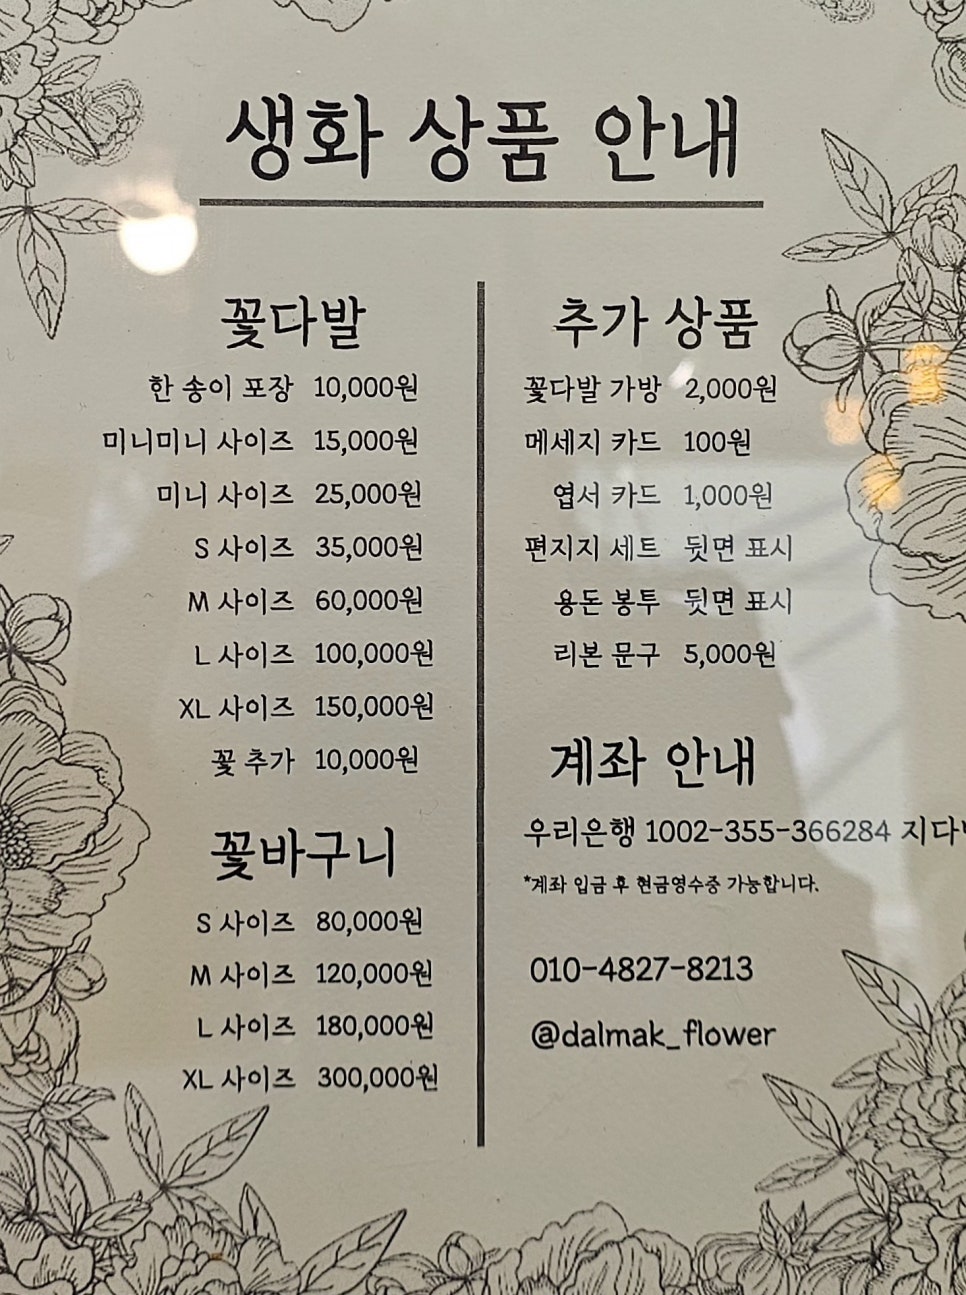 생화 상품 안내
꽃다발
한 송이 포장 10,000원
미니미니 사이즈 15,000원
미니 사이즈 25,000원
S 사이즈 35,000원
M 사이즈 60,000원
L 사이즈 100,000원
XL 사이즈 150,000원
꽃 추가 10,000원
꽃바구니
S 사이즈 80,000원
M 사이즈 120,000원
L 사이즈 180,000원
XL 사이즈 300,000원
추가 상품
꽃다발 가방 2,000원
메세지 카드 100원
엽서 카드 1,000원
편지지 세트 뒷면 표시
용돈 봉투 뒷면 표시
리본 문구 5,000원
계좌 안내
우리은행 1002-355-366284
*계좌 입금 후 현금영수증 가능합니다.
010-4827-8213
@dalmak_flower